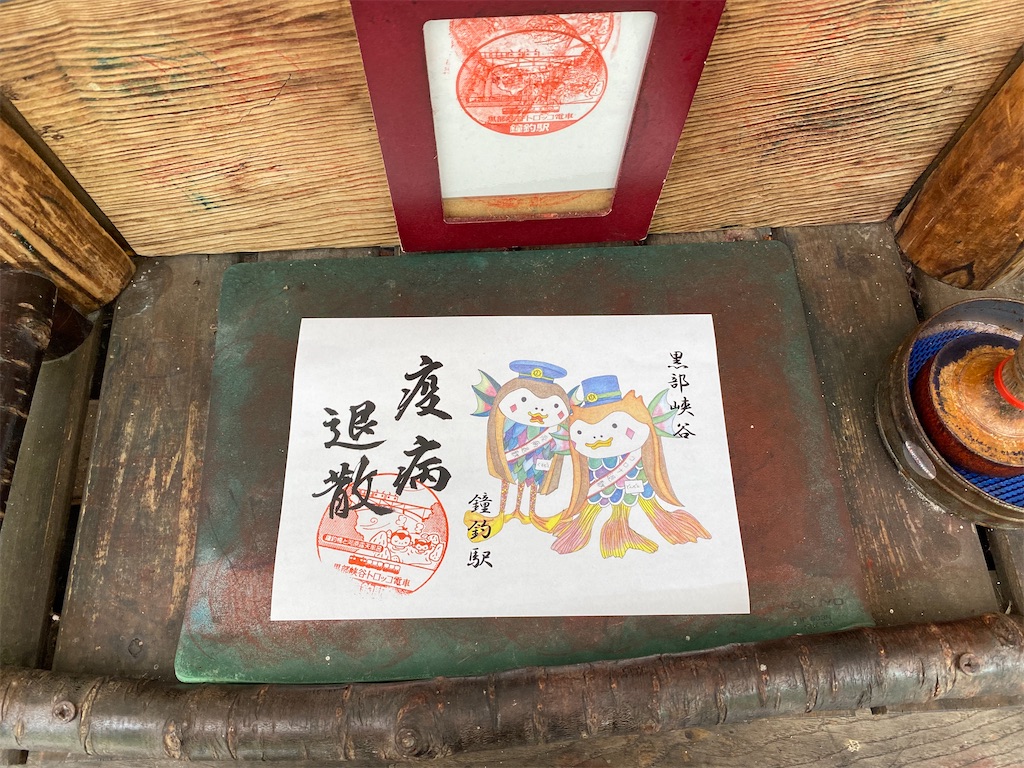 黒部峡谷トロッコ電車
鐘釣駅
黒部峡谷
鐘釣駅
疫病
退散
黒部峡谷トロッコ電車